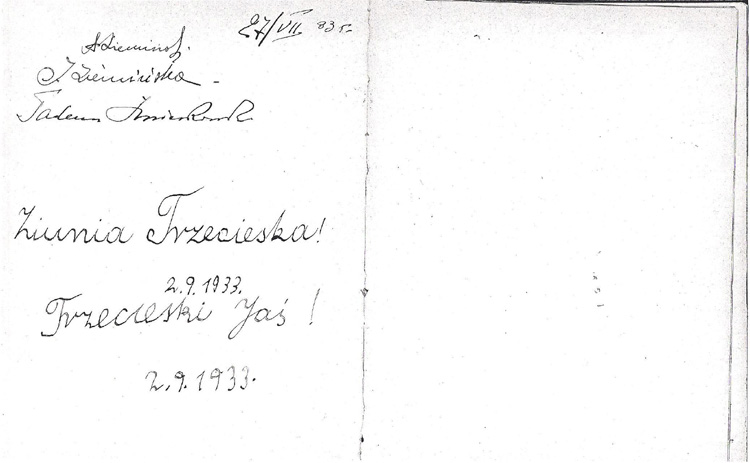 27/VII 33 r.
J Ziemińska
Tadeusz
Ziunia Trzecieska!
2.9.1933.
Trzecieski Jaś!
2.9.1933.